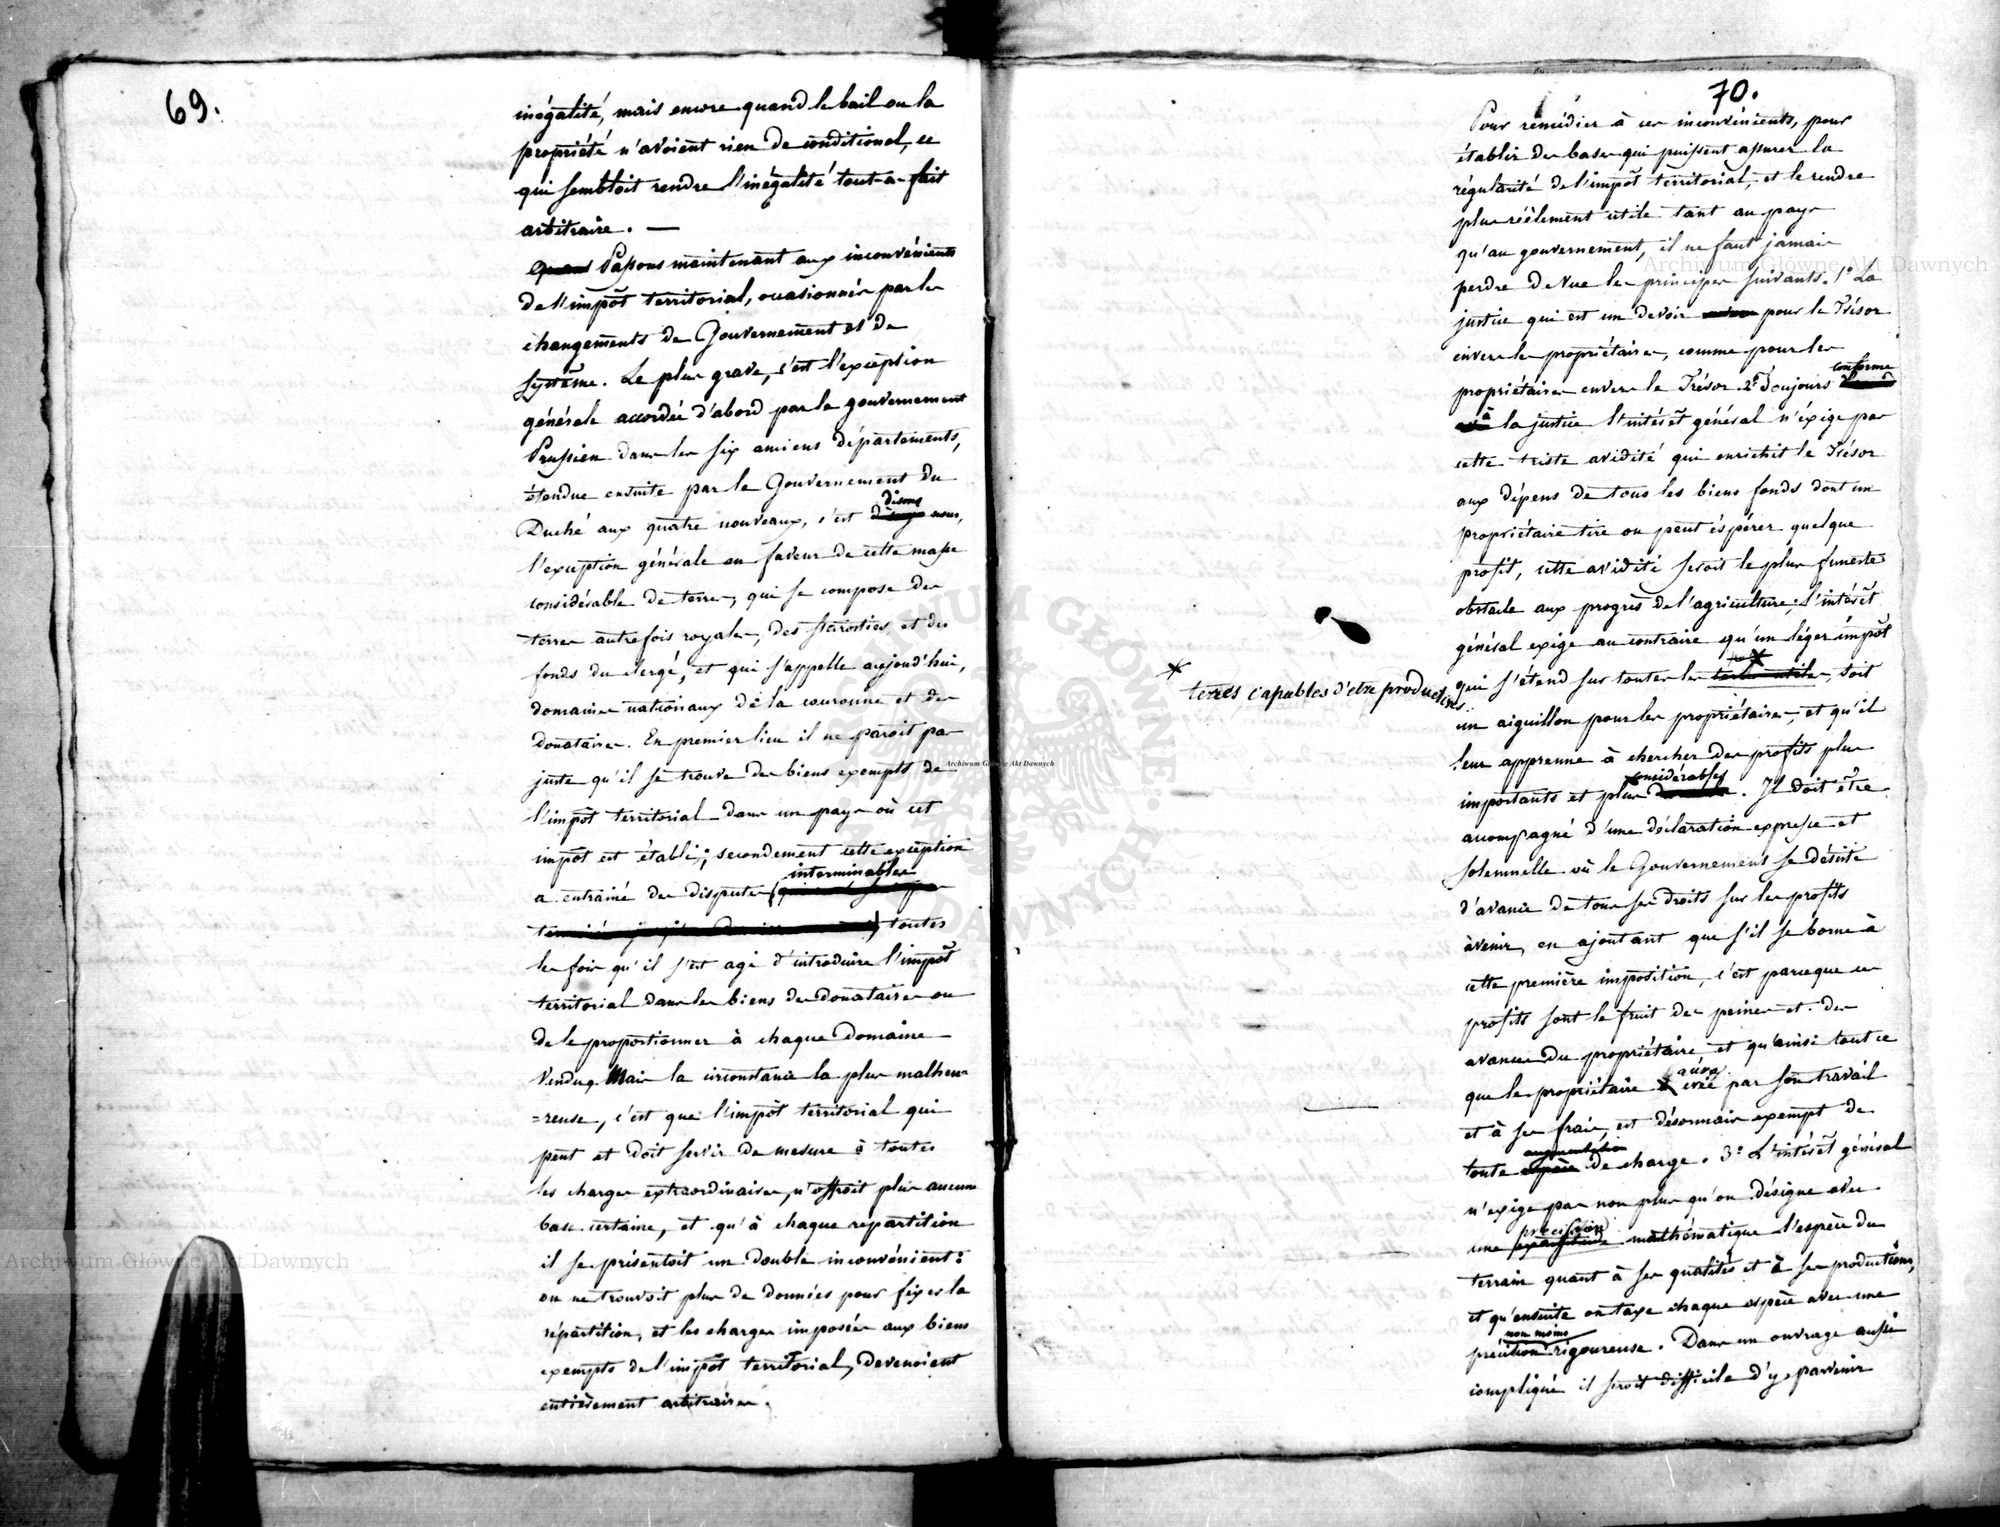 69.
inégalité, mais encore quand le bail ou la
propriété n'avoient rien de conditionel, ce
qui sembloit rendre l'inégalité tout-a-fait
arbitraire. —
Passons maintenant aux inconvénients
de l'impôt territorial, ocasionnés par les
changements de Gouvernement et de
système. Le plus grave, c'est l'exception
générale accordée d'abord par le gouvernement
Prussien dans les six anciens départements,
étendue ensuite par le Gouvernement du
Duché aux quatre nouveaux, c'est disons nous,
l'exception générale en faveur de cette masse
considérable de terres, qui se compose des
terres autrefois royales, des starosties, et des
fonds du clergé, et qui s'appelle aujourd'hui,
domaines nationaux de la couronne et des
donataires. En premier lieu il ne paroit pas
juste qu'il se trouve des biens exempts de
l'impôt territorial dans un pays où cet
impôt est établi; secondement cette exception
a entrainé des disputes interminables
toutes
les fois qu'il s'est agi d'introduire l'impôt
territorial dans les biens des donataires ou
de le proportionner à chaque domaine
vendu. Mais la circonstance la plus malheu
=reuse, c'est que l'impôt territorial qui
peut et doit servir de mesure à toutes
les charges extraordinaires, n'offroit plus aucune
base certaine, et qu'à chaque répartition
il se présentoit un double inconvénient:
on ne trouvoit plus de données pour fixer la
répartition, et les charges imposées aux biens
exempts de l'impôt territorial, devenoient
entièrement arbitraires.
70.
Pour remédier à ces inconvénients, pour
établir des bases qui puissent assurer la
régularité de l'impôt territorial, et le rendre
plus réèlement utile tant au pays
qu'au gouvernement, il ne faut jamais
perdre de vue les principes suivants. 1º La
justice qui est un devoir pour le Trésor
envers les propriétaires, comme pour les
propriétaires envers le Trésor. 2º Toujours conforme
à la justice l'intérêt général n'éxige pas
cette triste avidité qui enrichit le Trésor
aux dépens de tous les biens fonds dont un
propriétaire tire ou peut éspérer quelque
profit, cette avidité seroit le plus funeste
obstacle aux progrès de l'agriculture; l'intérêt
général exige au contraire qu'un léger impôt
qui s'étend sur toutes les *, soit
* terres capables d'etre productives
un aiguillon pour les propriétaires, et qu'il
leur apprenne à chercher des profits plus
importants et plus considérables. Il doit être
acompagné d'une déclaration expresse et
solemnelle où le Gouvernement se désiste
d'avance de tous ses droits sur les profits
àvenir, en ajoutant que s'il se borne à
cette première imposition, c'est parceque ces
profits sont le fruit des peines et des
avances du propriétaire, et qu'ainsi tout ce
que le propriétaire aura créé par son travail
et à ses frais, est désormais exempt de
toute augmentation de charge. 3º L'intérêt général
n'exige pas non plus qu'on désigne avec
une précision mathématique l'espèce du
terrain quant à ses qualités et à ses productions,
et qu'ensuite on taxe chaque espèce avec une
précision non moins rigoureuse. Dans un ouvrage aussi
compliqué il seroit difficile d'y parvenir
Archiwum Główne Akt Dawnych